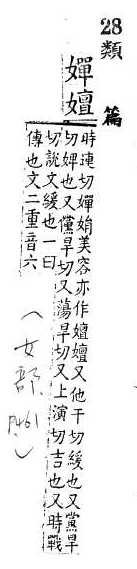 28
類篇
嬋嬗
時連切嬋娟美容亦作嬗嬗又他干切緩也又黨旱
切婢也又儻旱切又蕩旱切又上演切吉也又時戰
切說文緩也一曰
傳也文二重音六
(女部
P461)